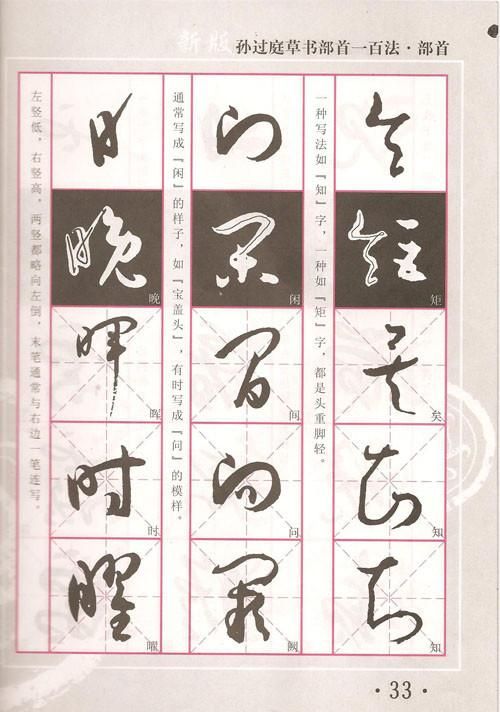 新版 孙过庭草书部首一百法·部首
一种写法如『知』字，一种如『矩』字，都是头重脚轻。
矩
矣
知
知
通常写成『闲』的样子，如『宝盖头』，有时写成『问』的模样。
闲
间
问
阙
左竖低，右竖高，两竖都略向左倒，末笔通常与右边一笔连写。
晚
晖
时
曜
·33·